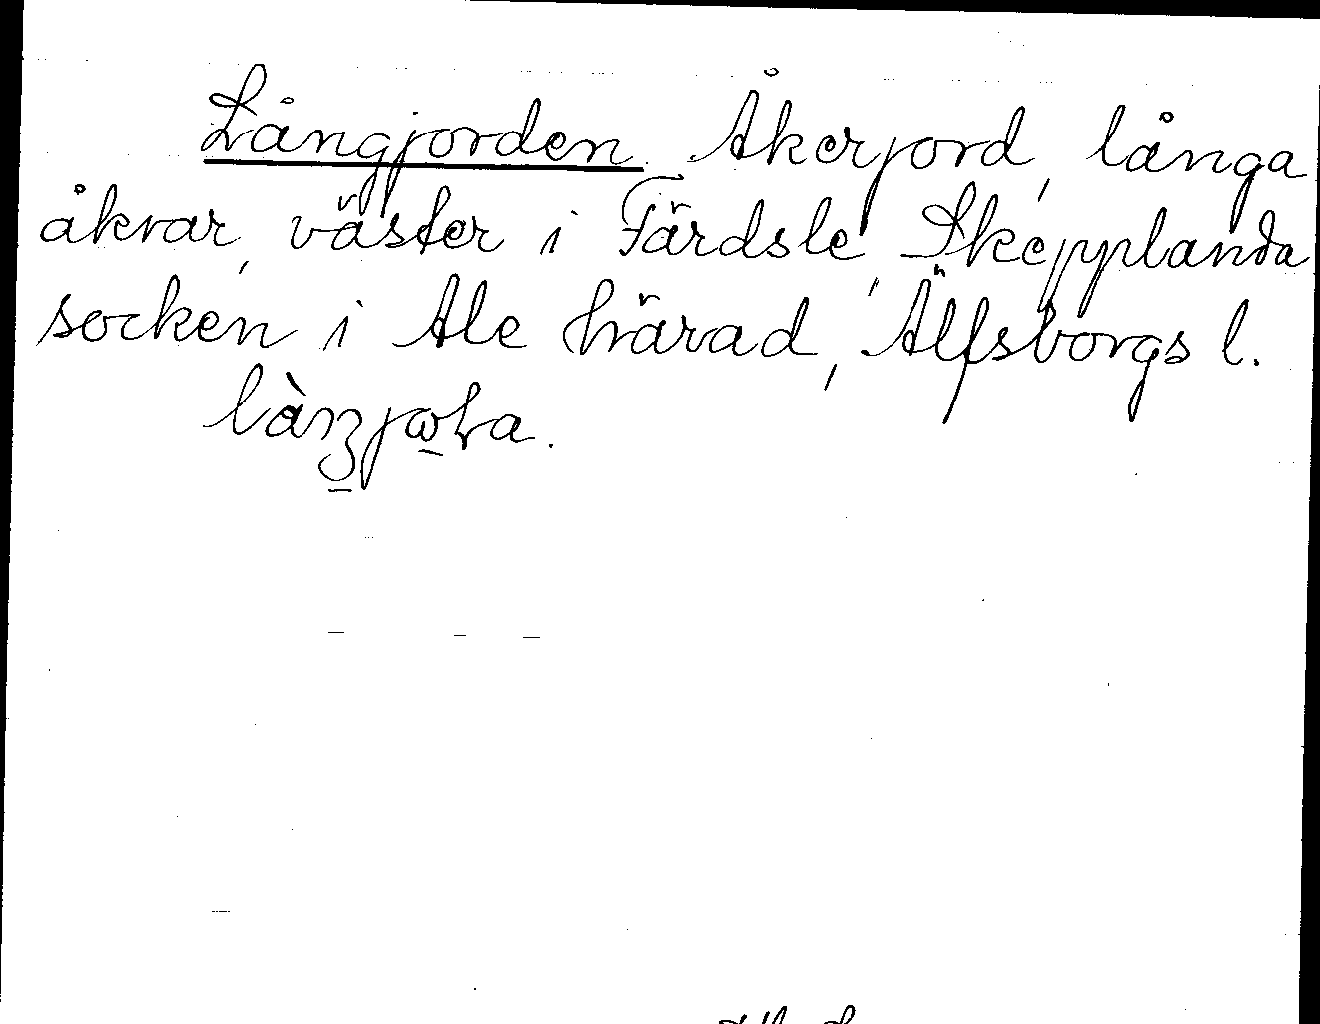 Långjorden. Åkerjord, långa
åkrar, väster i Färdsle, Skepplanda
socken i Ale härad, Älfsborgs l.